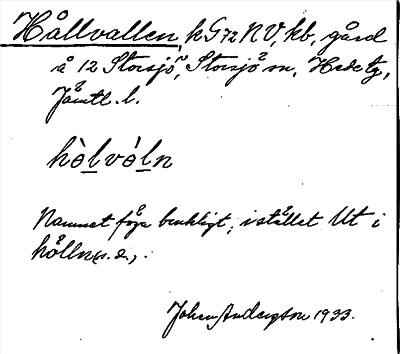 Hållvallen, k G72 NV, kb, gård
å 12 Storsjö, Storsjö sn, Hede tg,
Jämtl. l.
hòlvóln
Namnet föga brukligt, istället Ut i
hålln (s. d.).
Johan Andersson 1933.